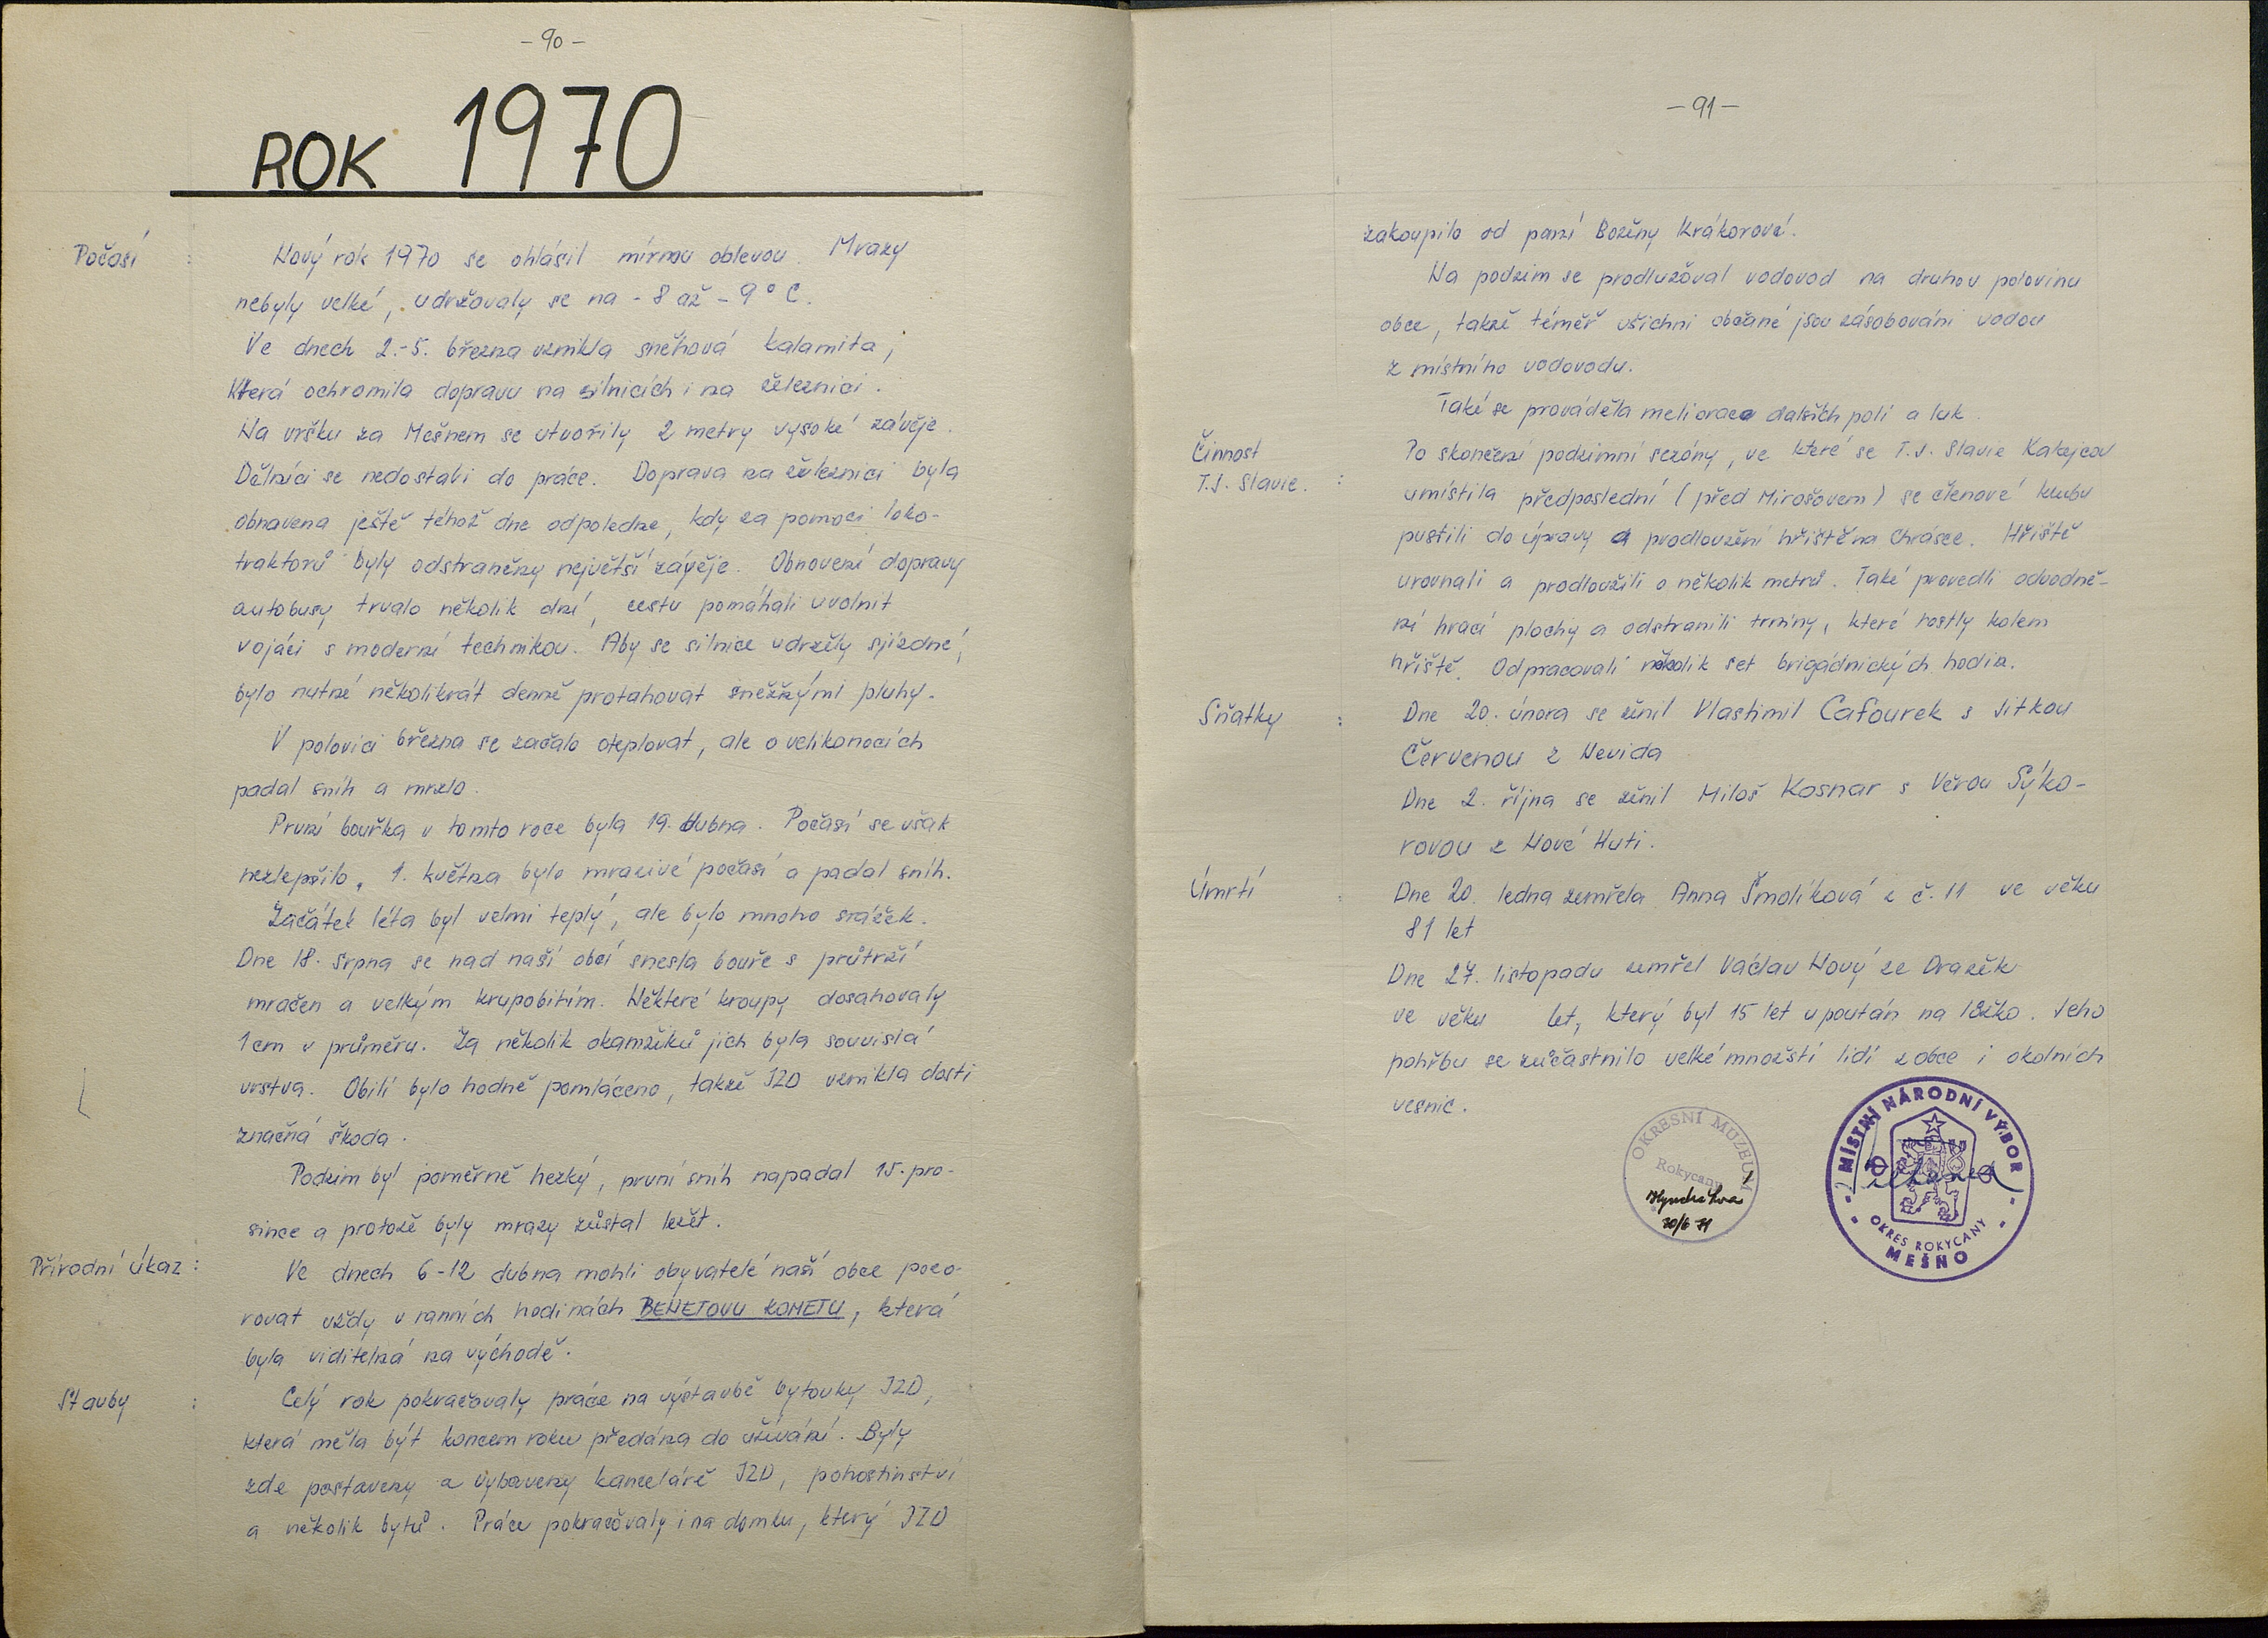 - 90 -
ROK 1970
Počasí :
Nový rok 1970 se ohlásil mírnou oblevou. Mrazy
nebyly velké, udržovaly se na - 8 až - 9° C.
Ve dnech 2.-5. března vznikla sněhová kalamita,
která ochromila dopravu na silnicích i na železnici.
Na vršku za Mešnem se utvořily 2 metry vysoké závěje.
Dělníci se nedostali do práce. Doprava na železnici byla
obnavena ještě téhož dne odpoledne, kdy za pomoci loko-
traktorů byly odstraněny největší závěje. Obnovení dopravy
autobusy trvalo několik dní, cestu pomáhali uvolnit
vojáci s moderní technikou. Aby se silnice udržely sjízdné,
bylo nutné několikrát denně protahovat sněžnými pluhy.
V polovici března se začalo oteplovat, ale o velikonocích
padal sníh a mrzlo.
První bouřka v tomto roce byla 19. dubna. Počasí se však
nezlepšilo, 1. května bylo mrazivé počasí a padal sníh.
Začátek léta byl velmi teplý, ale bylo mnoho srážek.
Dne 18. srpna se nad naší obcí snesla bouře s průtrží
mračen a velkým krupobitím. Některé kroupy dosahovaly
1 cm v průměru. Za několik okamžiků jich byla souvislá
vrstva. Obilí bylo hodně pomláceno, takže JZD vznikla dosti
značná škoda.
Podzim byl poměrně hezký, první sníh napadal 15. pro-
since a protože byly mrazy zůstal ležet.
Přírodní úkaz :
Ve dnech 6-12 dubna mohli obyvatelé naší obce pozo-
rovat vždy v ranních hodinách BENETOVU KOMETU, která
byla viditelná na východě.
Stavby :
Celý rok pokračovaly práce na výstavbě bytovky JZD,
která měla být koncem roku předána do užívání. Byly
zde postaveny a vybaveny kanceláře JZD, pohostinství
a několik bytů. Práce pokračovaly i na domku, který JZD
- 91 -
zakoupilo od paní Boženy Krákorové.
Na podzim se prodlužoval vodovod na druhou polovinu
obce, takže téměř všichni občané jsou zásobováni vodou
z místního vodovodu.
Také se prováděla meliorace dalších polí a luk.
Činnost
T.J. Slavie. :
Po skončení podzimní sezóny, ve které se T.J. Slavie Kakejcov
umístila předposlední (před Mirošovem) se členové klubu
pustili do úpravy a prodloužení hřiště na Chrásce. Hřiště
urovnali a prodloužili o několik metrů. Také provedli odvodně-
ní hrací plochy a odstranili trniny, které rostly kolem
hřiště. Odpracovali několik set brigádnických hodin.
Sňatky :
Dne 20. února se ženil Vlastimil Cafourek s Jitkou
Červenou z Nevida
Dne 2. října se ženil Miloš Kosnar s Věrou Sýko-
rovou z Nové Huti.
Úmrtí :
Dne 20. ledna zemřela Anna Šmolíková z č. 11 ve věku
81 let
Dne 27. listopadu zemřel Václav Nový ze Drazěk
ve věku let, který byl 15 let upoután na lůžko. Jeho
pohřbu se zúčastnilo velké množství lidí z obce i okolních
vesnic.
OKRESNÍ MUZEUM
Rokycany
30/6 71
MÍSTNÍ NÁRODNÍ VÝBOR
OKRES ROKYCANY
MEŠNO